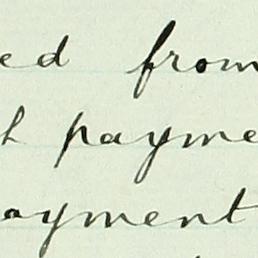 ed from
payme
ayment